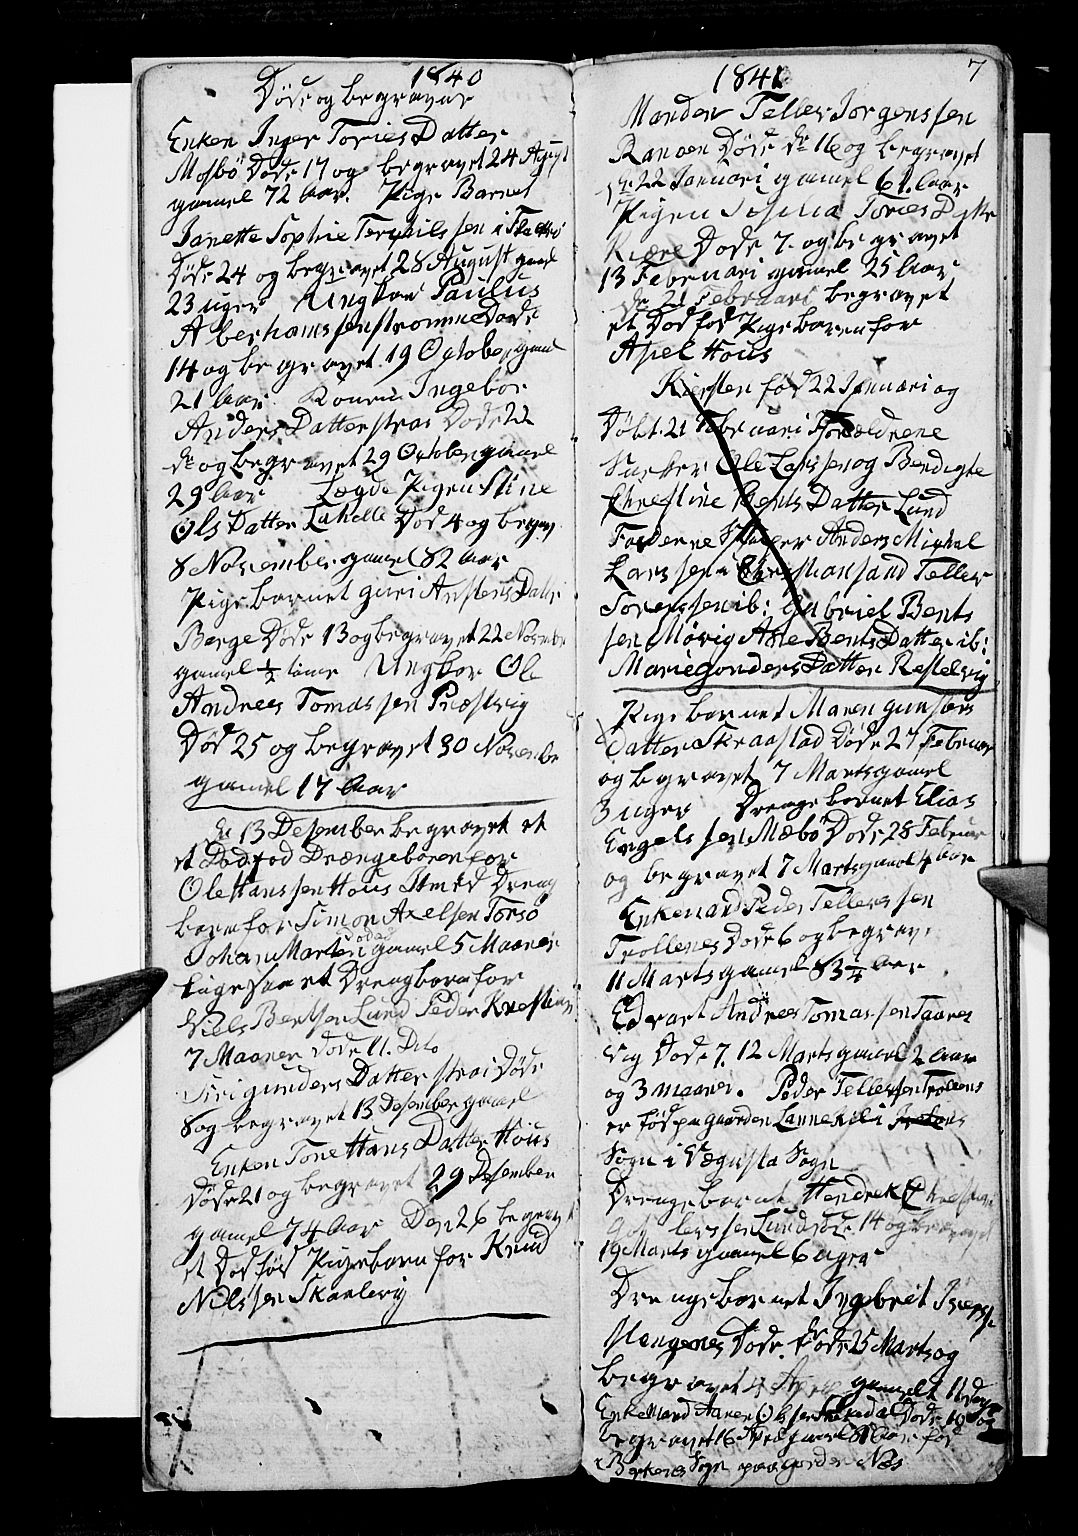 1840
Døde og begravne
Enken Inger Tories Datter
Mosbö Döde 17 og begravet 24 Agust
gamel 72 Aar. Pige Barnet
Janette Sophie Terkils sen i
Döde 24 og begravet 28 August gaml
23 uger Ungkar Paulus
Aberhams sen strømme Døde
14 og be gravet 19 October gaml
21 Aar Konen Ingebor
Anders Datter strai Døde 22
de og begravet 29 October gamel
29 Aar Lægde Pigen Stine
Ols Datter Lahelle Död 4 og begrav
8 November gamel 82 Aar
Pige barnet guri Anstens Datr
Berge Döde 13 og begravet 22 Novembr
gamel ½ time Ungkar Ole
Andreas Tomas sen Præstvig
Död 25 og begravet 30 Novembe
gamel 17 Aar
de 13 Desember begravet et
et Dødfød Drængebaren for
Ole Hans sen Høus It med Dreng
barn for Simon Axelsen Torsö
Johan Marten döde gamel 5 Maaner
lige saa et Drengbarn for
Niels Bentsen Lund Peder Krestian
7 Maaner döde 11. Dito
Siri gunders Datter strai Døde
8 og begravet 13 Desember gamel
Enken Tone Hans Datter Høus
döde 21 og begravet 29 Desember
gamel 74 Aar Den 26 begravet
et Dødfød Pigebarn for Knud
Nils sen Skarlevig
1841
7
Manden Teller Jorgens sen
Ranoen Døde de 16 og begravet
de 22 Januari gamel 61 Aar
Pigen Tories Datter
Kiære Døde 7 og begravet
13 Februari gamel 25 Aar
de 21 Februari begravet
et Dødfød Pige barn for
Axel Høus
Kiersten fød 22 Januari og
Døbt 21 Februari Foreldrene
Ole Lars sen og Bendigte
Chrestine Bents Datter Lund
Faderne Anders Mickal
Lars sen Chrestiansand Teller
Sørens sen ib: Gabriel Bents
sen Møvig Ane Bents Datter ib:
Marie gonders Datter Restelvig
Pige barnet Maren gunsters
Datter Skraastad Døde 27 Februar
og begravet 7 Marts gamel
3 uger Drenge barnet Elias
Engels sen Mæbö Døde 28 Februar
og begravet 7 Marts gamel 4 Aar
Enkemand Peder Tellers sen
Trollenes Døde 6 og begravet
11 Marts gamel 83 ¼ Aar
Edvart Andreas Tomas sen Taanes
vig Døde 7. 12 Marts gamel 2 Aar
og 3 maaner. Peder Tellersen Trolnes
er fød paa gaarden Lannekil i
Sogn i Vægusta Sogn
Drengebarnet Hendrek Chrestian
sen Lund Døde 14 og begravet
19 Marts gamel 6 uger
Drenge barnet Ingebret
Slangenes Døde de 25 Marts og
begravet 4 gamelt 11 dage
Enkemand Aanen Ols sen Døde 10 og
begravet 16 gamel 81 Aar fød
Sogn paa gorden Næs